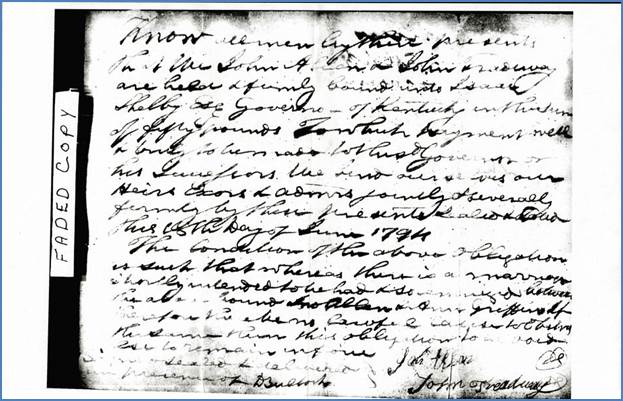 FADED COPY
Know all men by these presents
that We John Allen & John Treadway
are held & firmly bound unto Isaac
Shelby Esq Governor of Kentucky in the sum
of fifty pounds To which payment well
& truly to be made to the sd Governor or
his Successors We bind ourselves our
Heirs Exors & admrs jointly & severally
firmly by these presents Sealed & dated
this 15th Day of June 1794
The Condition of the above obligation
is such that whereas there is a marriage
shortly intended to be had & solemnized between
the above bound Jno Allen & Ann Griffin If
therefore there be no lawful cause to Obstruct
the same then this obligation to be void
else to remain in force
sealed & delivered
in presence of D Bullock
John Allen
John Treadway